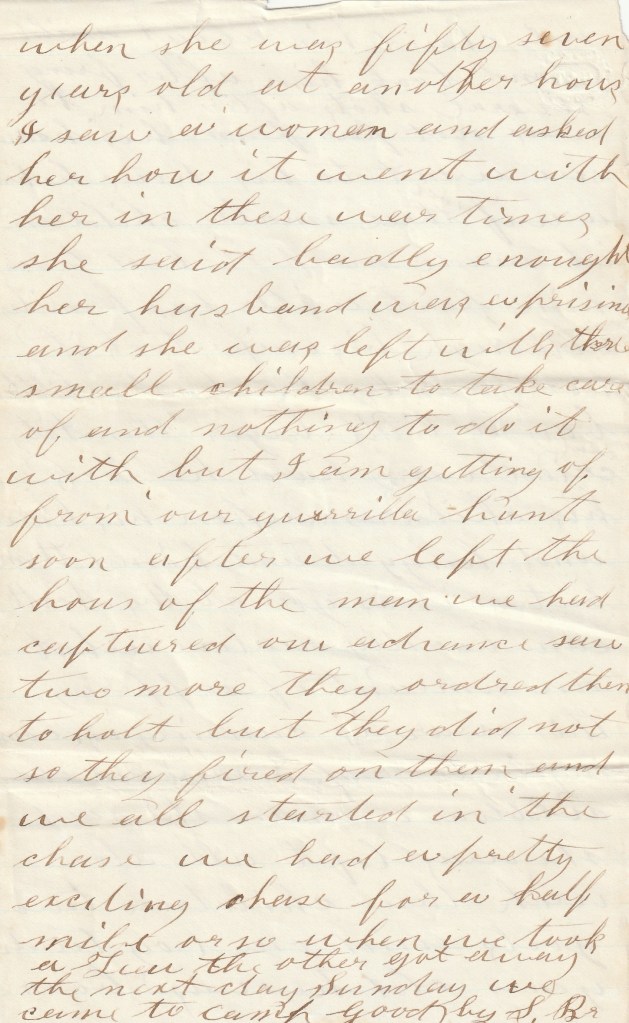 when she was fifty seven
years old at another hous
I saw a woman and asked
her how it went with
her in these war times
she said badly enough
her husband was a prisine
and she was left with thre
small children to take care
of and nothing to do it
with but I am getting of
from our guerrilla hunt
soon after we left the
hous of the man we had
captured our advance saw
two more they ordred them
to holt but they did not
so they fired on them and
we all started in the
chase we had a pretty
exciting chase for a half
mile or so when we took
a the other got away
the next day Sunday we
came to camp good by S. Br